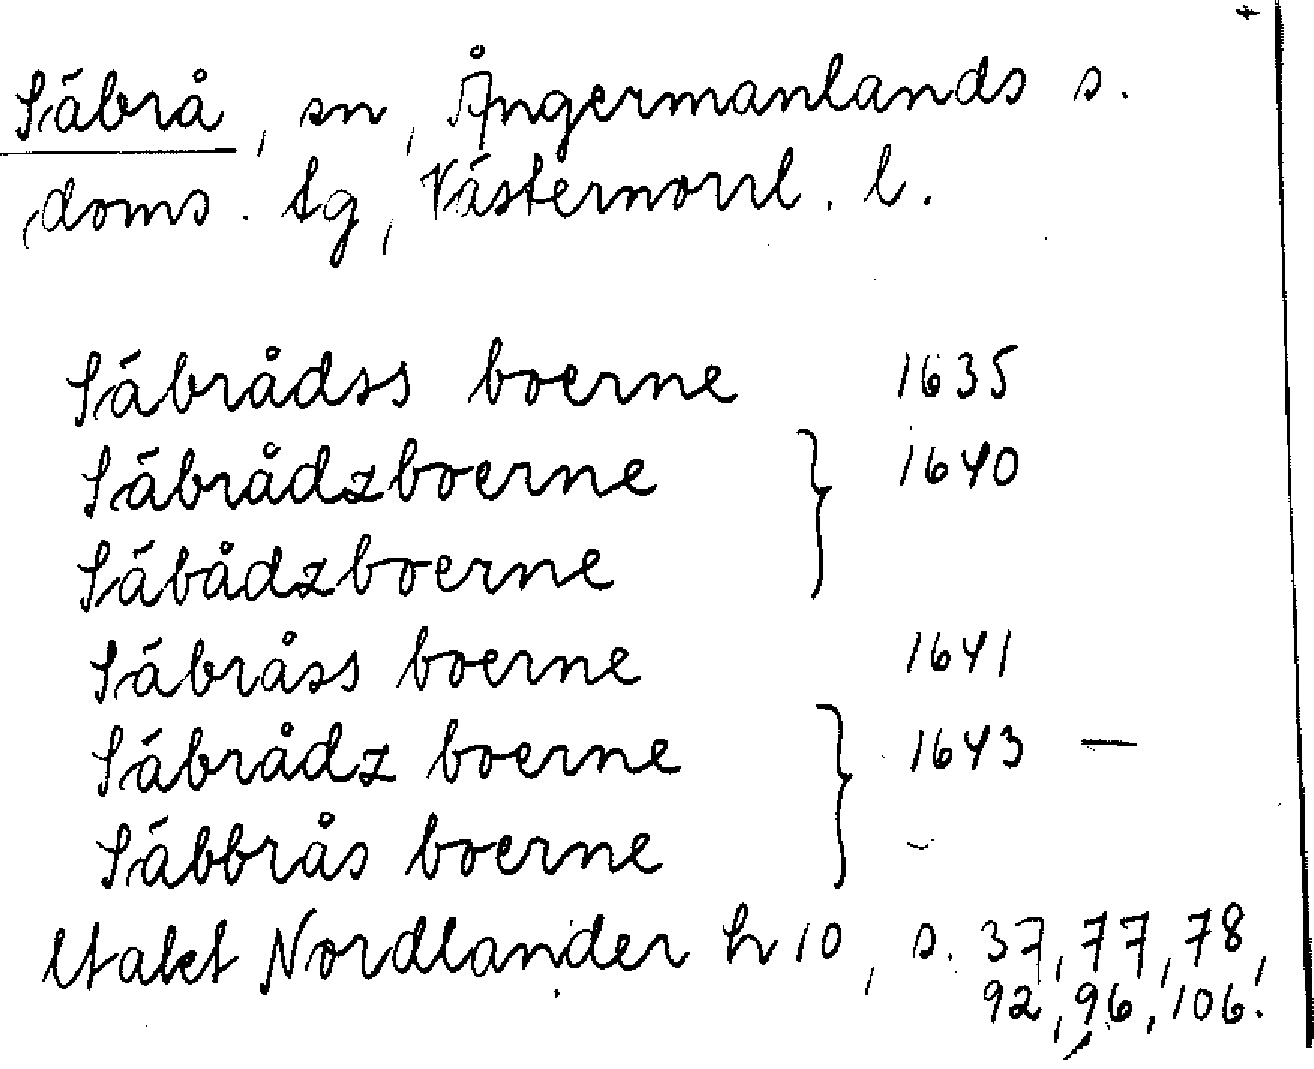 Säbrå, sn, Ångermanlands s.
doms. tg, Västernorrl. l.
Säbrådss boerne 1635
Säbrådzboerne } 1640
Säbådzboerne
Säbråss boerne 1641
Säbrådz boerne } 1643 —
Säbbrås boerne
Nordlander h 10, s. 37, 77, 78,
92, 96, 106.